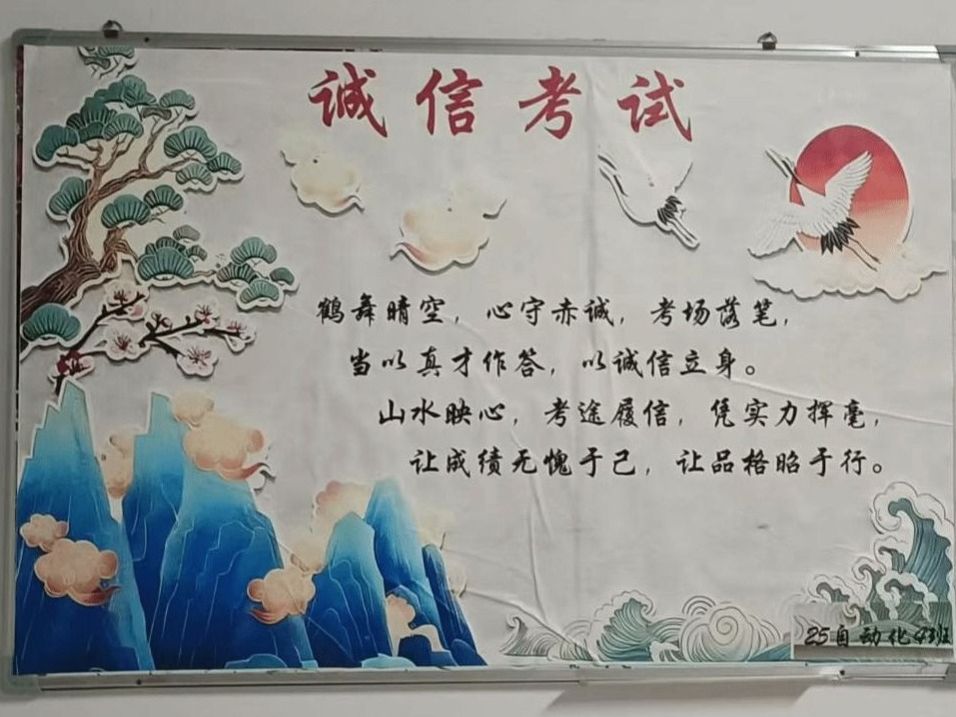 诚信考试
鹤舞晴空，心守赤诚，考场落笔，
当以真才作答，以诚信立身。
山水映心，考途履信，凭实力挥毫，
让成绩无愧于己，让品格昭于行。
25自动化43班